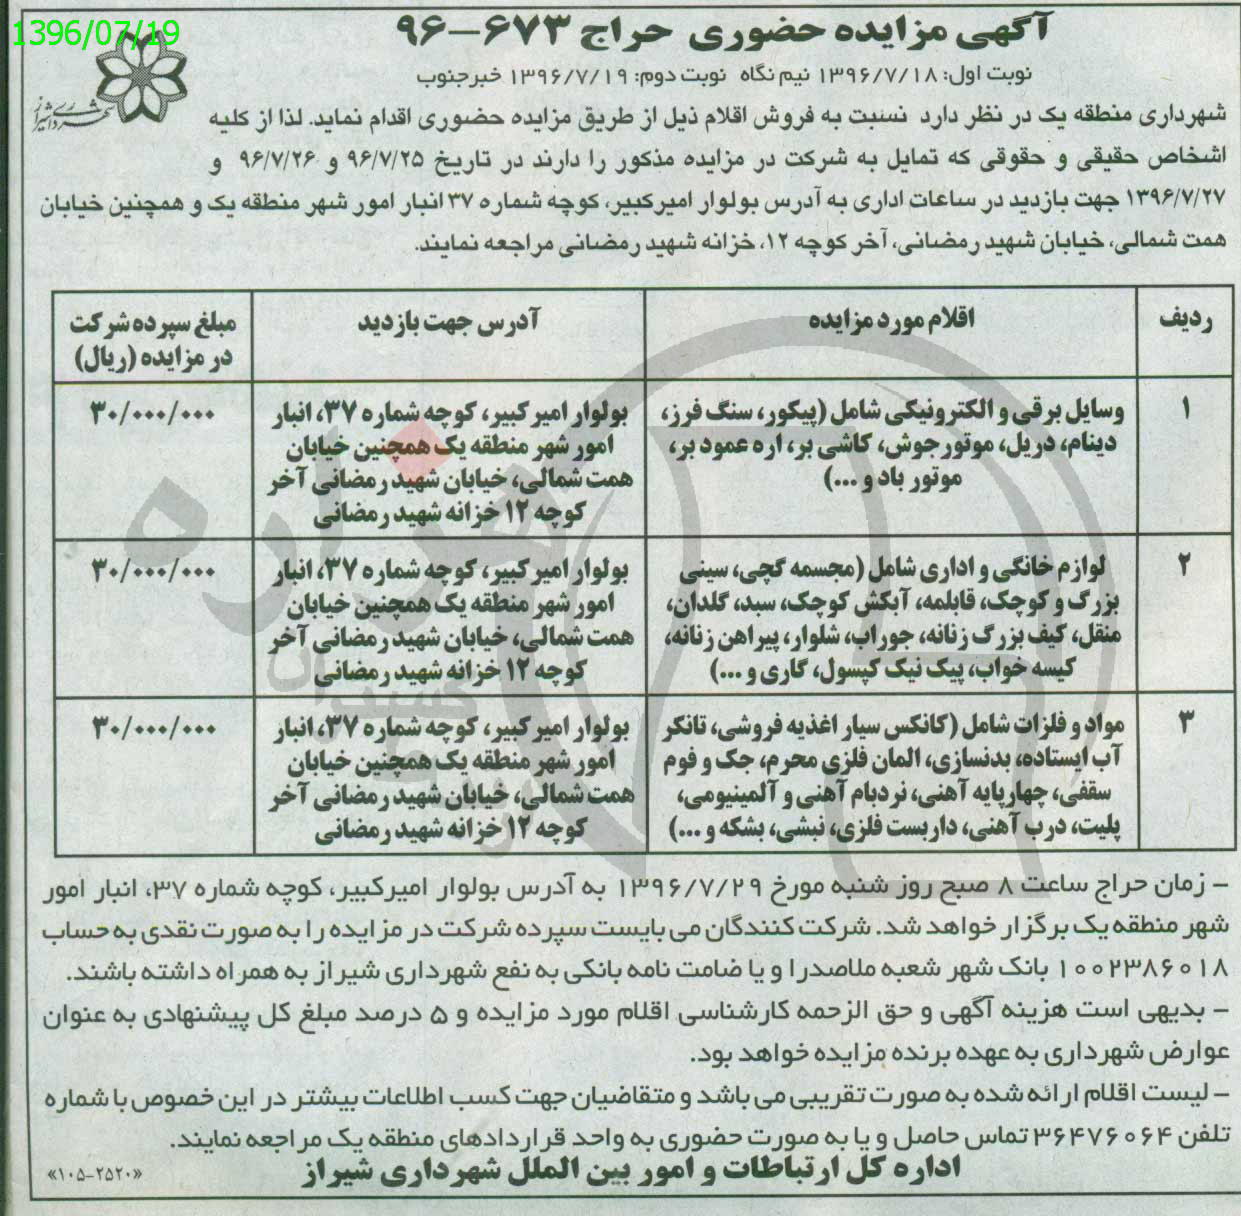 1396/07/19
آگهی مزایده حضوری حراج ۶۷۳-۹۶
نوبت اول: ۱۳۹۶/۷/۱۸ نیم نگاه نوبت دوم: ۱۳۹۶/۷/۱۹ خبرجنوب
شهرداری شیراز
شهرداری منطقه یک در نظر دارد نسبت به فروش اقلام ذیل از طریق مزایده حضوری اقدام نماید. لذا از کلیه
اشخاص حقیقی و حقوقی که تمایل به شرکت در مزایده مذکور را دارند در تاریخ ۹۶/۷/۲۵ و ۹۶/۷/۲۶ و
۱۳۹۶/۷/۲۷ جهت بازدید در ساعات اداری به آدرس بولوار امیرکبیر، کوچه شماره ۳۷ انبار امور شهر منطقه یک و همچنین خیابان
همت شمالی، خیابان شهید رمضانی، آخر کوچه ۱۲، خزانه شهید رمضانی مراجعه نمایند.
ردیف
اقلام مورد مزایده
آدرس جهت بازدید
مبلغ سپرده شرکت
در مزایده (ریال)
۱
وسایل برقی و الکترونیکی شامل (پیکور، سنگ فرز،
دینام، دریل، موتور جوش، کاشی بر، اره عمود بر،
موتور باد و ...)
بولوار امیرکبیر، کوچه شماره ۳۷، انبار
امور شهر منطقه یک همچنین خیابان
همت شمالی، خیابان شهید رمضانی آخر
کوچه ۱۲ خزانه شهید رمضانی
۳۰/۰۰۰/۰۰۰
۲
لوازم خانگی و اداری شامل (مجسمه گچی، سینی
بزرگ و کوچک، قابلمه، آبکش کوچک، سبد، گلدان،
منقل، کیف بزرگ زنانه، جوراب، شلوار، پیراهن زنانه،
کیسه خواب، پیک نیک کپسول، گاری و ...)
بولوار امیرکبیر، کوچه شماره ۳۷، انبار
امور شهر منطقه یک همچنین خیابان
همت شمالی، خیابان شهید رمضانی آخر
کوچه ۱۲ خزانه شهید رمضانی
۳۰/۰۰۰/۰۰۰
۳
مواد و فلزات شامل (کانکس سیار اغذیه فروشی، تانکر
آب ایستاده، بدنسازی، المان فلزی محرم، جک و فوم
سقفی، چهارپایه آهنی، نردبام آهنی و آلمینیومی،
پلیت، درب آهنی، داربست فلزی، نبشی، بشکه و ...)
بولوار امیرکبیر، کوچه شماره ۳۷، انبار
امور شهر منطقه یک همچنین خیابان
همت شمالی، خیابان شهید رمضانی آخر
کوچه ۱۲ خزانه شهید رمضانی
۳۰/۰۰۰/۰۰۰
- زمان حراج ساعت ۸ صبح روز شنبه مورخ ۱۳۹۶/۷/۲۹ به آدرس بولوار امیرکبیر، کوچه شماره ۳۷، انبار امور
شهر منطقه یک برگزار خواهد شد. شرکت کنندگان می بایست سپرده شرکت در مزایده را به صورت نقدی به حساب
۱۰۰۲۳۸۶۰۱۸ بانک شهر شعبه ملاصدرا و یا ضامت نامه بانکی به نفع شهرداری شیراز به همراه داشته باشند.
- بدیهی است هزینه آگهی و حق الزحمه کارشناسی اقلام مورد مزایده و ۵ درصد مبلغ کل پیشنهادی به عنوان
عوارض شهرداری به عهده برنده مزایده خواهد بود.
- لیست اقلام ارائه شده به صورت تقریبی می باشد و متقاضیان جهت کسب اطلاعات بیشتر در این خصوص با شماره
تلفن ۳۶۴۷۶۰۶۴ تماس حاصل و یا به صورت حضوری به واحد قراردادهای منطقه یک مراجعه نمایند.
اداره کل ارتباطات و امور بین الملل شهرداری شیراز
«۱۰۵-۲۵۲۰»
هزاره